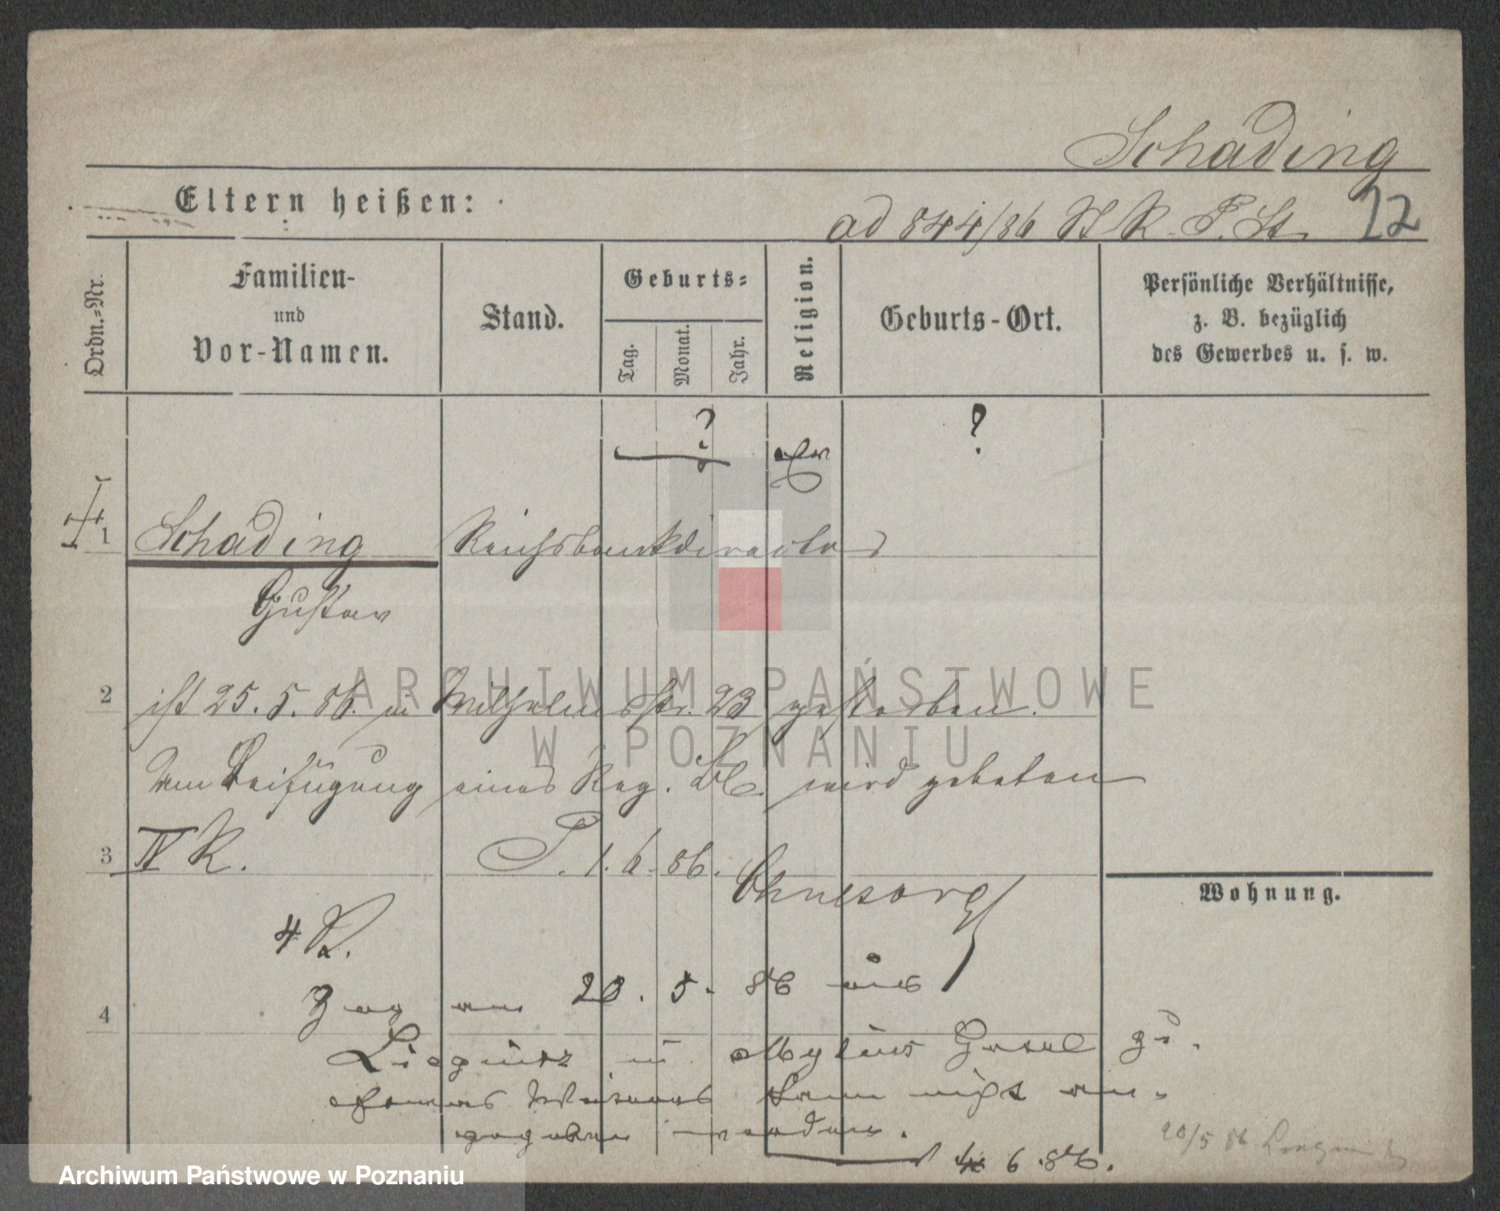 Schading
Eltern heißen:
ad 844/86 IV R. P. St. 12
Ordn.=Nr.
Familien-
und
Vor-Namen.
Stand.
Geburts=
Tag.
Monat.
Jahr.
Religion.
Geburts-Ort.
Persönliche Verhältnisse,
z. B. bezüglich
des Gewerbes u. s. w.
? ?
ev
1 Schading Reichsbankdirector
Gustav
2 ist 25. 5. 86. in Wilhelmsstr. 23 gestorben.
Um Beifügung eines Reg. Bl. wird gebeten
3 IV R. P. 1. 6. 86.
Ohnesorg
Wohnung.
4 R.
4 Zog am 20. 5. 86 aus
Liegnitz in Mylius Hotel zu.
kann nicht an-
gegeben werden.
4 6 86.
20/5 86
ARCHIWUM PAŃSTWOWE
W POZNANIU
Archiwum Państwowe w Poznaniu